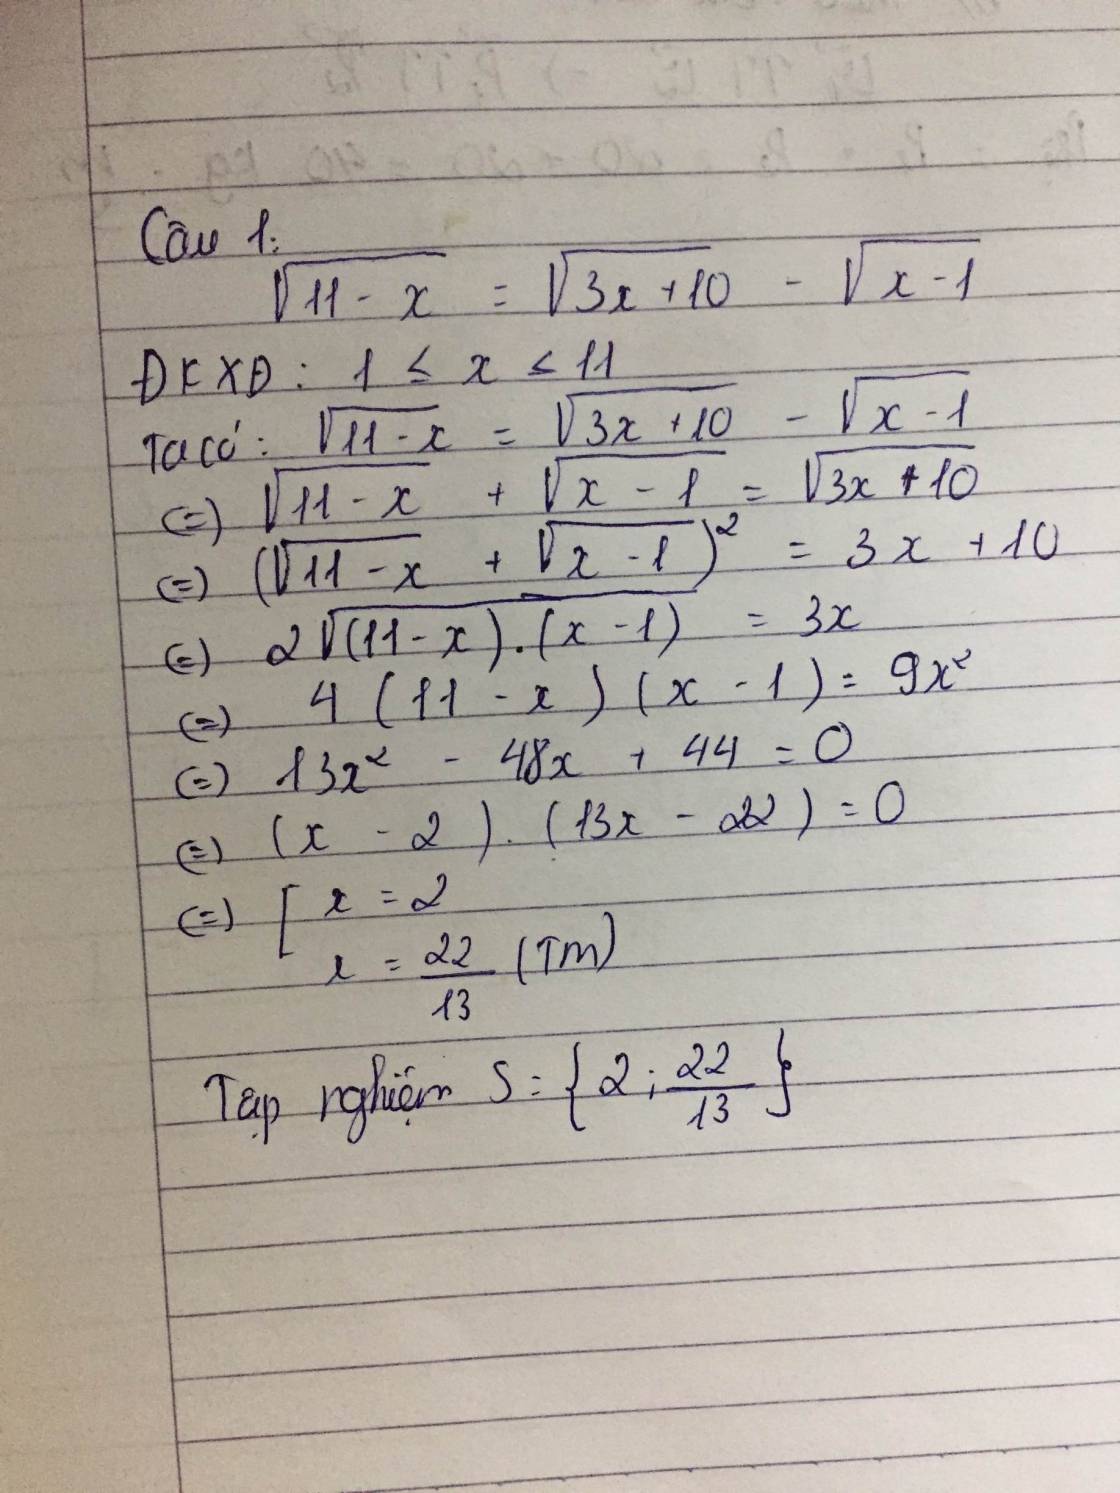 Câu 1:
√(11 - x) = √(3x + 10) - √(x - 1)
ĐKXĐ : 1 ≤ x ≤ 11
Ta có : √(11 - x) = √(3x + 10) - √(x - 1)
(=) √(11 - x) + √(x - 1) = √(3x + 10)
(=) (√(11 - x) + √(x - 1))² = 3x + 10
(=) 2√((11 - x).(x - 1)) = 3x
(=) 4 (11 - x) (x - 1) = 9x²
(=) 13x² - 48x + 44 = 0
(=) (x - 2).(13x - 22) = 0
(=) [ x = 2
x = 22/13 (TM)
Tập nghiệm S = {2 ; 22/13}